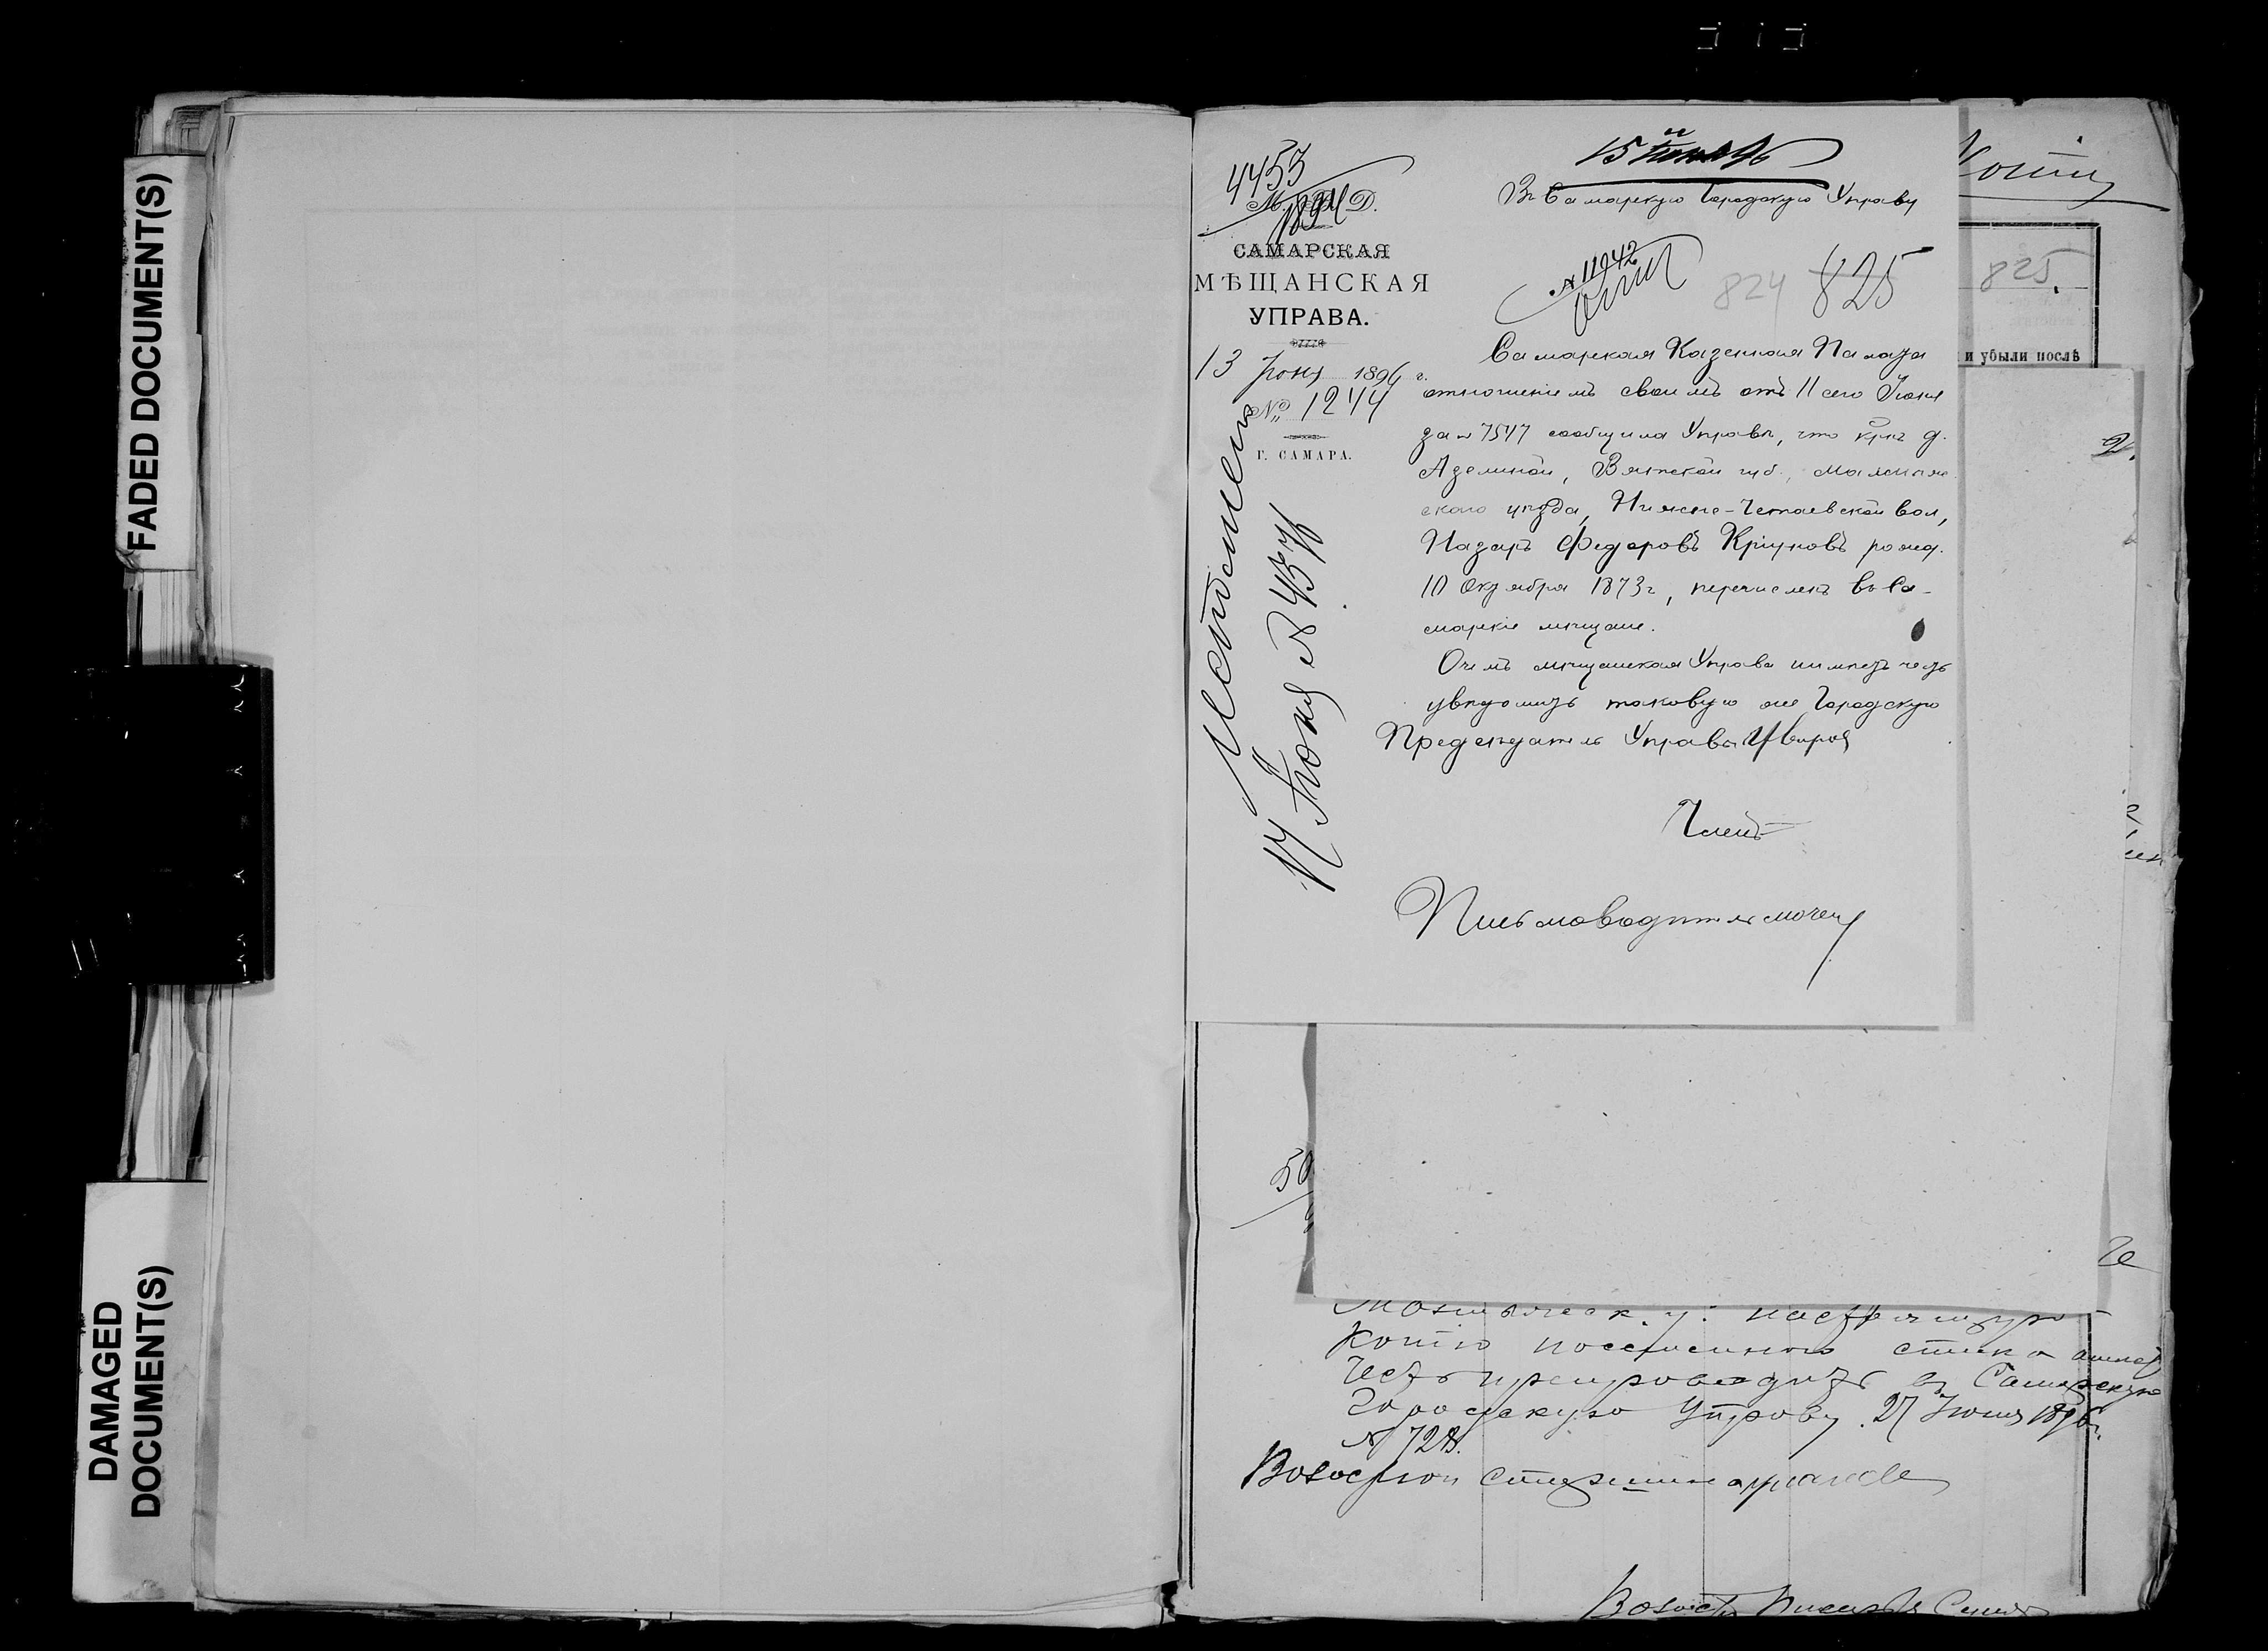 FADED DOCUMENT(S)
DAMAGED DOCUMENT(S)
4453
1894
М. В. Д.
САМАРСКАЯ
МѢЩАНСКАЯ
УПРАВА.
13 Іюня 1896 г.
№ 1244
Г. САМАРА.
17 Іюня № 4576
15 Іюня 96
Въ Самарскую Городскую Управу
№ 11942
824 825
Самарская Казенная Палата
отношеніемъ своимъ отъ 11 сего Іюня
за № 7547 сообщила Управѣ, что кр-нъ д.
Аземиной, Вятской губ., Малмыж-
скаго уѣзда, Нижне-Четаевской вол,
Назаръ Федоровъ Кріуновъ рожд.
10 Октября 1873 г, перечисленъ въ Са-
маркіе мѣщане.
О чемъ мѣщанская Управа имѣетъ честь
увѣдомить таковую же Городскую
Предсѣдатель Управы
Членъ
Письмоводитель
825.
и убыли послѣ
50
копію посемейнаго списка имѣетъ
честь препроводить въ Самарскую
Городскую Управу. 27 Іюня 1896 г.
№ 728.
Волостной старшина